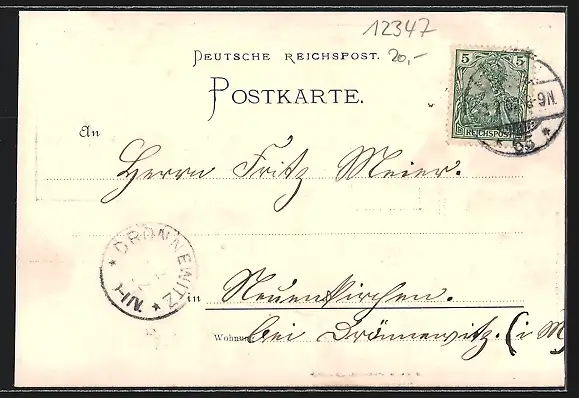 12347
20,-
DEUTSCHE REICHSPOST.
POSTKARTE.
5 5
REICHSPOST
8-9N.
* 65 *
An
Herrn Fritz Meier.
* DRÖNNEWITZ *
1-11V.
in Neuenkirchen.
Wohnung bei Drönnewitz. (i M